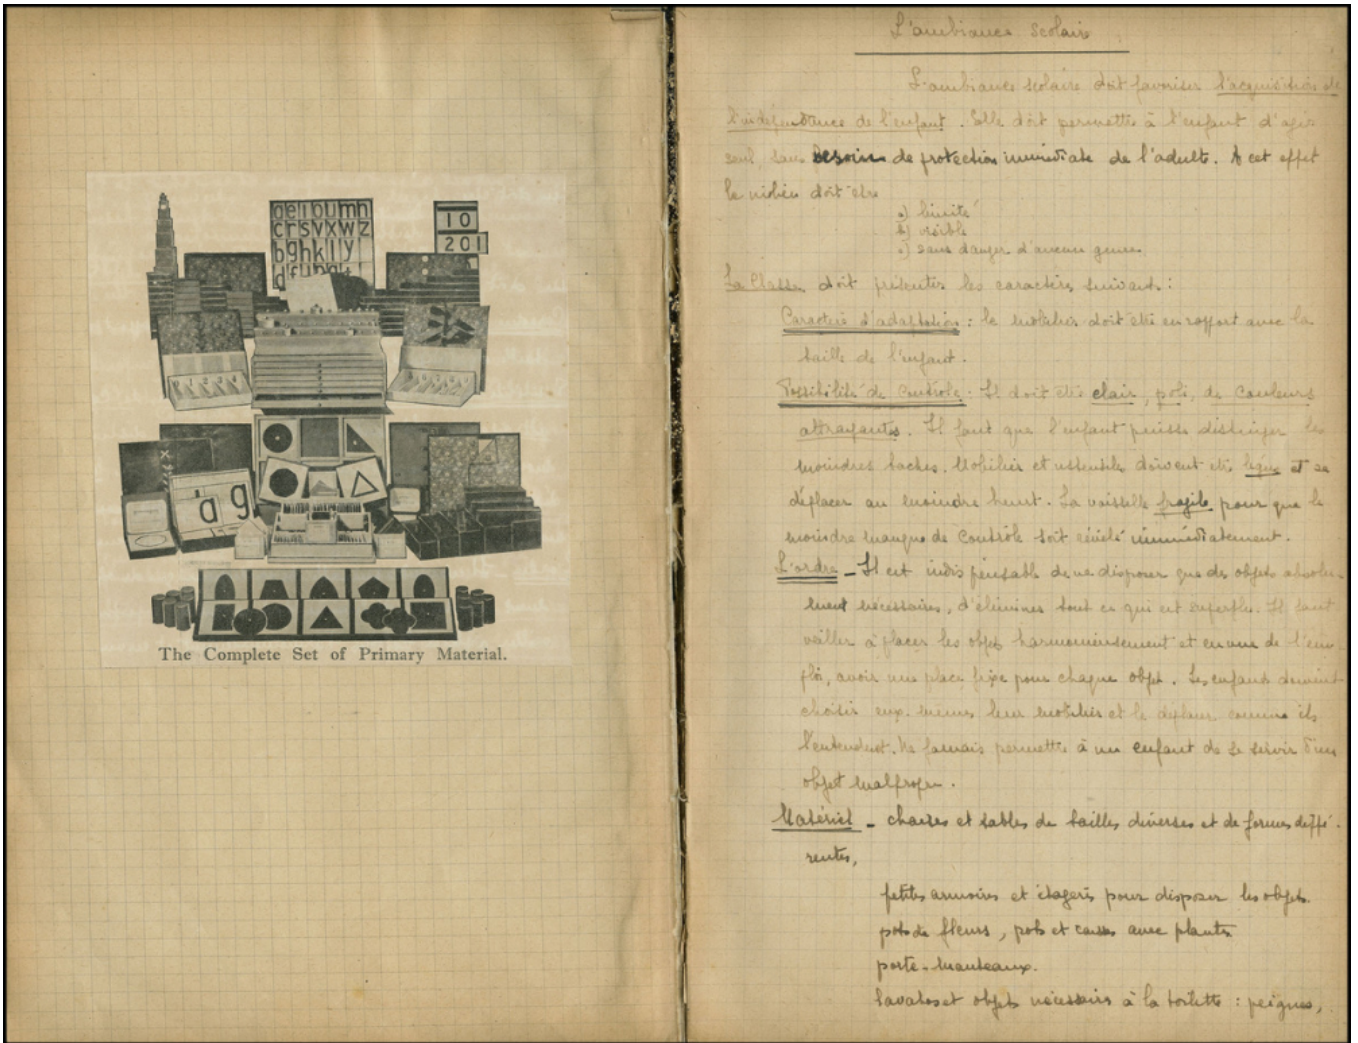 aeioumn
crsvxwz
bghkly
10
201
a g
The Complete Set of Primary Material.
L'ambiance scolaire
L'ambiance scolaire doit favoriser l'acquisition de
l'indépendance de l'enfant. Elle doit permettre à l'enfant d'agir
seul, sans besoin de protection immédiate de l'adulte. A cet effet
le milieu doit être
a) limité
b) visible
c) sans danger d'aucun genre.
La Classe doit présenter les caractères suivants :
Caractère d'adaptation : le mobilier doit être en rapport avec la
taille de l'enfant.
Possibilité de Contrôle : Il doit être clair, poli, de couleurs
attrayantes. Il faut que l'enfant puisse distinguer les
moindres taches. Mobilier et ustensiles doivent être légers et se
déplacer au moindre heurt. La vaisselle fragile pour que le
moindre manque de Contrôle soit révélé immédiatement.
L'ordre _ Il est indispensable de ne disposer que des objets absolu-
ment nécessaires, d'éliminer tout ce qui est superflu. Il faut
veiller à placer les objets harmonieusement et en vue de l'em-
ploi, avoir une place fixe pour chaque objet. Les enfants doivent
choisir eux-mêmes leur mobilier et le déplacer comme ils
l'entendent. Ne jamais permettre à un enfant de se servir d'un
objet malpropre.
Matériel _ chaises et tables de tailles diverses et de formes diffé-
rentes,
petites armoires et étagères pour disposer les objets.
pots de fleurs, pots et caisses avec plantes
porte-manteaux.
lavabos et objets nécessaires à la toilette : peignes,